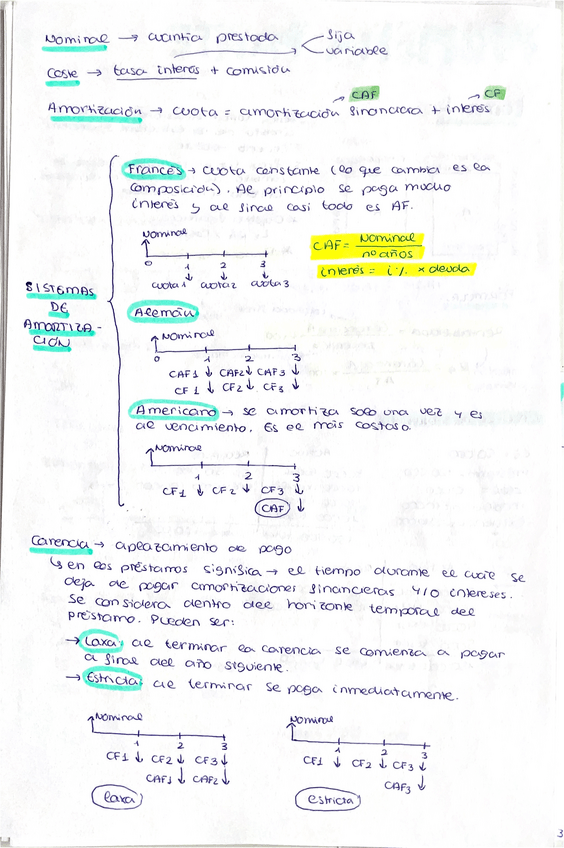 Nominal → cuantía prestada → fija
variable
Coste → tasa interés + comisión
CAF CF
Amortización → cuota = amortización financiera + interés
Francés → cuota constante (lo que cambia es la
composición). Al principio se paga mucho
interés y al final casi todo es AF.
Nominal
0 1 2 3
cuota 1 cuota 2 cuota 3
CAF = Nominal
nº años
interés = i % x deuda
SISTEMAS
DE
AMORTIZA-
CIÓN
Alemán
Nominal
0 1 2 3
CAF1 ↓ CAF2 ↓ CAF3 ↓
CF1 ↓ CF2 ↓ CF3 ↓
Americano → se amortiza solo una vez y es
al vencimiento. Es el más costoso.
Nominal
1 2 3
CF1 ↓ CF2 ↓ CF3 ↓
CAF ↓
Carencia → aplazamiento de pago
↳ en los préstamos significa → el tiempo durante el cual se
deja de pagar amortizaciones financieras y/o intereses.
Se considera dentro del horizonte temporal del
préstamo. Pueden ser:
→ Laxa: al terminar la carencia se comienza a pagar
a final del año siguiente.
→ Estricta: al terminar se paga inmediatamente.
Nominal
1 2 3
CF1 ↓ CF2 ↓ CF3 ↓
CAF1 ↓ CAF2 ↓
laxa
Nominal
1 2 3
CF1 ↓ CF2 ↓ CF3 ↓
CAF3 ↓
estricta
3